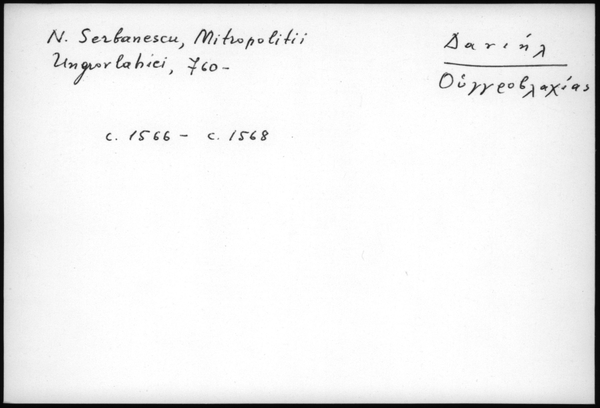 N. Serbanescu, Mitropolitii
Ungrovlahiei, 760-
Δανιήλ
Οὑγγροβλαχίας
c. 1566 - c. 1568